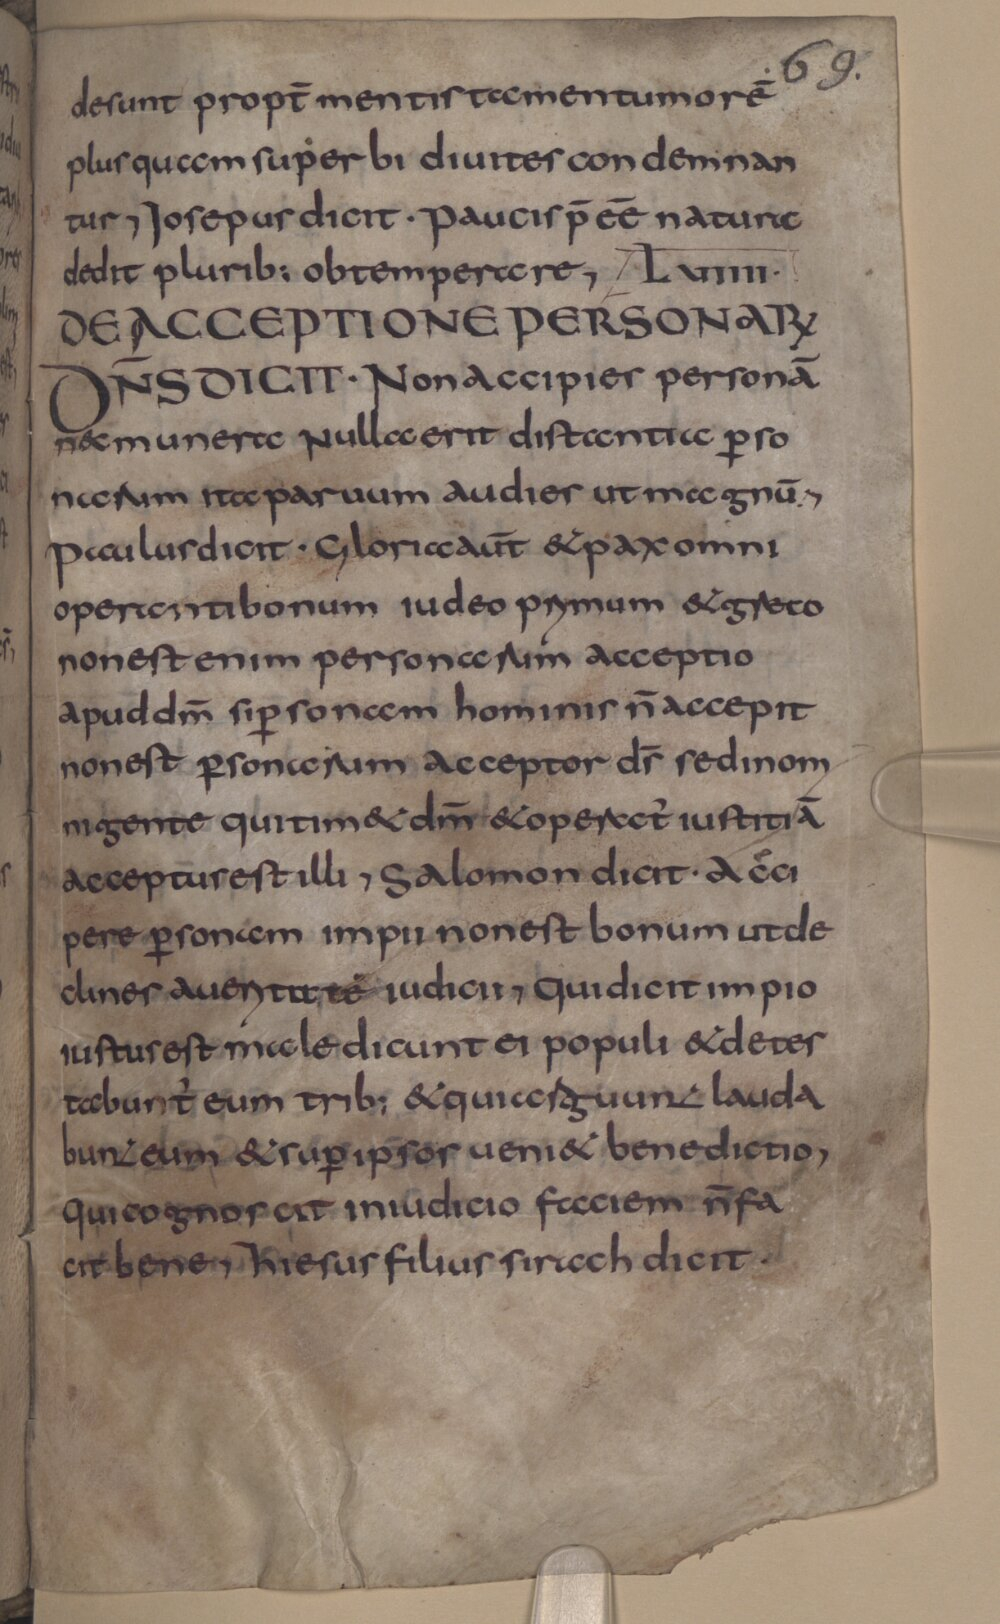 69.
desunt propt̄ mentis tamen tumorē
plus quam superbi diuites condemnan
tur, Josepus dicit · Paucis p̄ eē natura
dedit plurib; obtemperare, Lviiii·
DE ACCEPTIONE PERSONARꝝ
DN̄S DICIT · Non accipies personā
nec munera Nulla erit distantia ꝑso
narum ita paruum audies ut magnū,
Paulus dicit · Gloria aūt & pax omni
operanti bonum iudeo primum & greco
non est enim personarum acceptio
apud dm̄ si ꝑsonam hominis n̄ accepit
non est ꝑsonarum acceptor ds̄ sed in om
ni gente qui tim& dm̄ & operat᷑ iustitiā
acceptus est illi, Salomon dicit · Acci
pere ꝑsonam impii non est bonum ut de
clines a ueritate iudicii, Qui dicit impio
iustus est maledicunt ei populi & detes
tabunt᷑ eum trib; & qui arguunt lauda
bunt eum & suꝑ ipsos ueni& benedictio,
Qui cognoscit in iudicio faciem n̄ fa
cit bene, hiesus filius sirach dicit ·